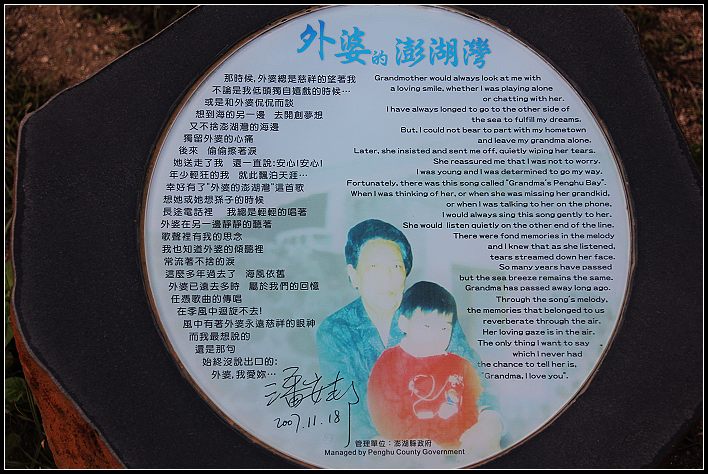 外婆的澎湖灣
那時候,外婆總是慈祥的望著我
不論是我低頭獨自嬉戲的時候…
或是和外婆侃侃而談
想到海的另一邊 去開創夢想
又不捨澎湖灣的海邊
獨留外婆的心痛
後來 偷偷擦著淚
她送走了我 還一直說:安心!安心!
年少輕狂的我 就此飄泊天涯…
幸好有了"外婆的澎湖灣"這首歌
想她或她想孫子的時候
長途電話裡 我總是輕輕的唱著
外婆在另一邊靜靜的聽著
歌聲裡有我的思念
我也知道外婆的傾聽裡
常流著不捨的淚
這麼多年過去了 海風依舊
外婆已遠去多時 屬於我們的回憶
任憑歌曲的傳唱
在季風中迴旋不去!
風中有著外婆永遠慈祥的眼神
而我最想說的
還是那句
始終沒說出口的:
外婆,我愛妳…
Grandmother would always look at me with
a loving smile, whether I was playing alone
or chatting with her.
I have always longed to go to the other side of
the sea to fulfill my dreams.
But, I could not bear to part with my hometown
and leave my grandma alone.
Later, she insisted and sent me off, quietly wiping her tears.
She reassured me that I was not to worry.
I was young and I was determined to go my way.
Fortunately, there was this song called "Grandma's Penghu Bay".
When I was thinking of her, or when she was missing her grandkid,
or when I was talking to her on the phone,
I would always sing this song gently to her.
She would listen quietly on the other end of the line.
There were fond memories in the melody
and I knew that as she listened,
tears streamed down her face.
So many years have passed
but the sea breeze remains the same.
Grandma has passed away long ago.
Through the song's melody,
the memories that belonged to us
reverberate through the air.
Her loving gaze is in the air.
The only thing I want to say
which I never had
the chance to tell her is,
"Grandma, I love you".
潘安邦
2007.11.18
管理單位:澎湖縣政府
Managed by Penghu County Government